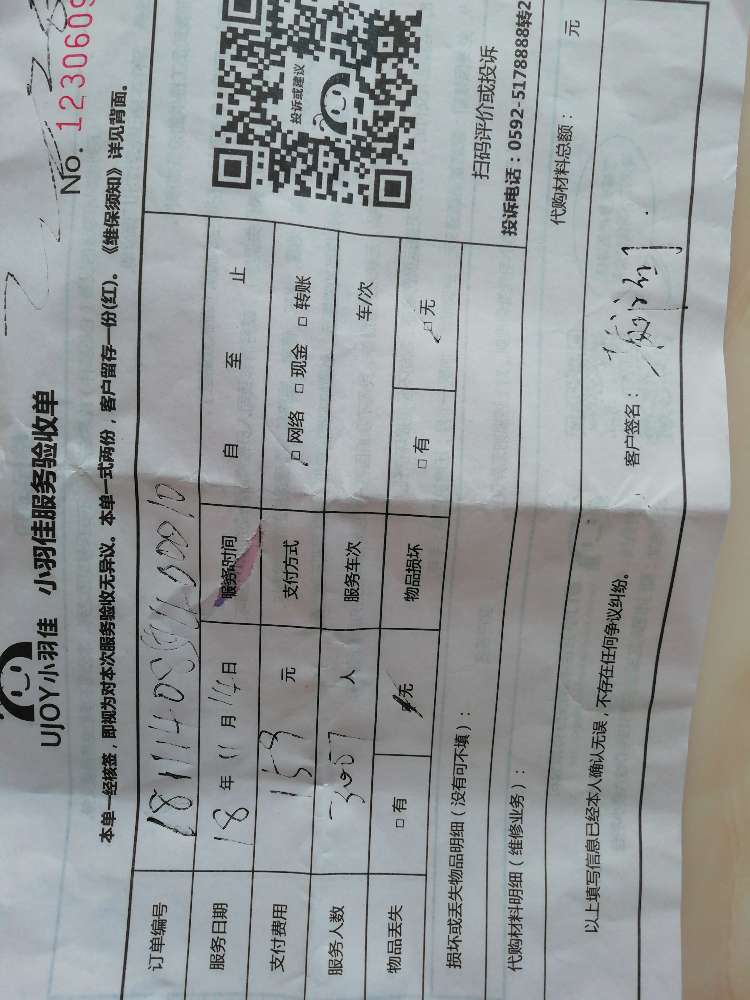 UJOY小羽佳 小羽佳服务验收单
No. 1230609
本单一经核签，即视为对本次服务验收无异议。本单一式两份，客户留存一份(红)。《维保须知》详见背面。
订单编号
服务日期 18 年 11 月 14 日 服务时间 自 至 止
支付费用 159 元 支付方式 □ 网络 □ 现金 □ 转账
服务人数 人 服务车次 车/次
物品丢失 □ 有 □ 无 物品损坏 □ 有 □ 无
投诉或建议
扫码评价或投诉
投诉电话：0592-5178888转2
损坏或丢失物品明细（没有可不填）：
代购材料明细（维修业务）： 代购材料总额： 元
以上填写信息已经本人确认无误，不存在任何争议纠纷。 客户签名：